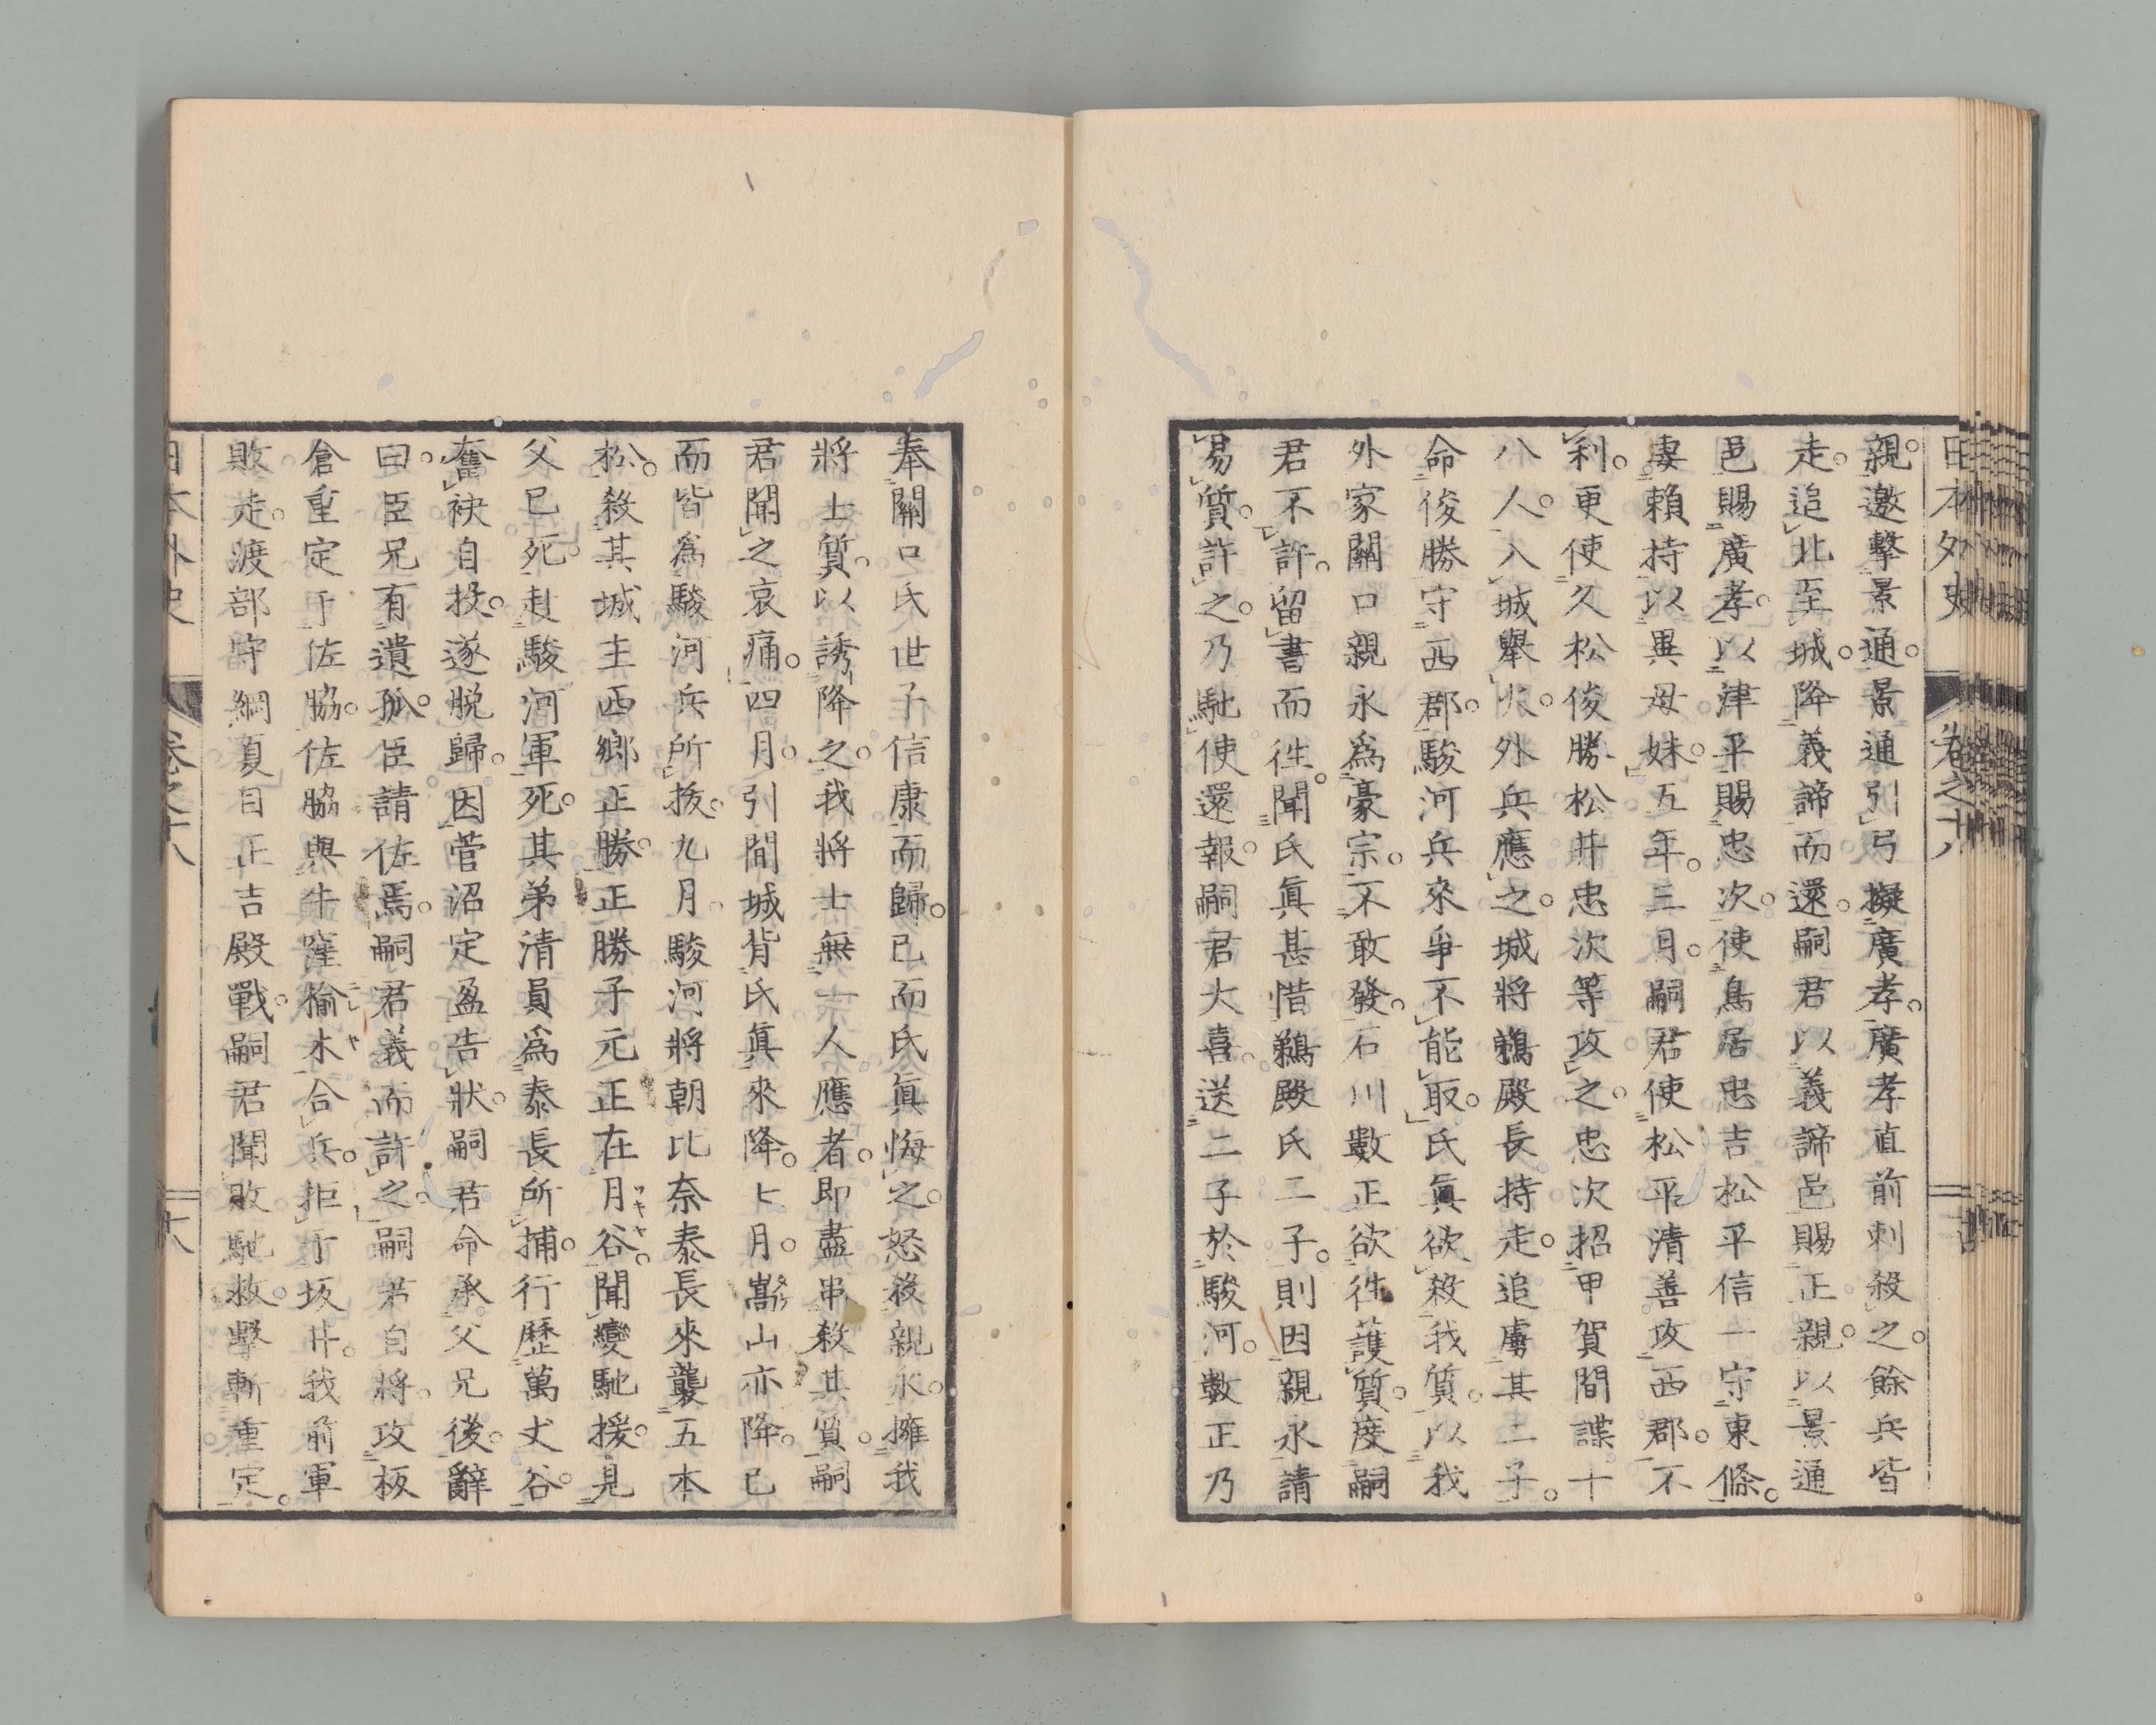 日本外史 卷之十八
親。邀擊景通。景通引弓擬廣孝。廣孝直前刺殺之。餘兵皆
走。追北至城。降義諦而還。嗣君以義諦邑賜正親。以景通
邑賜廣孝。以津平賜忠次。使鳥居忠吉松平信一守東條。
妻賴持以異母妹。五年。三月。嗣君使松平清善攻西郡。不
利。更使久松俊勝松井忠次等攻之。忠次招甲賀間諜十
八人。入城舉火。外兵應之。城將鵜殿長持走。追虜其二子。
命俊勝守西郡。駿河兵來爭不能取。氏眞欲殺我質。以我
外家關口親永爲豪宗。不敢發。石川數正欲徃護質。度嗣
君不許。留書而徃。聞氏眞甚惜鵜殿氏二子。則因親永請
易質。許之。乃馳使還報。嗣君大喜。送二子於駿河。數正乃
奉關口氏世子信康而歸。已而氏眞悔之。怒殺親永。擁我
將士質。以誘降之。我將士無一人應者。即盡串殺其質。嗣
君聞之哀痛。四月。引間城背氏眞來降。七月。嵩山亦降。已
而皆爲駿河兵所拔。九月。駿河將朝比奈泰長來襲五本
松。殺其城主西鄉正勝。正勝子元正在月谷。聞變馳援。見
父已死。赴駿河軍死。其弟清員爲泰長所捕。行歷萬丈谷。
奮袂自投。遂脱歸。因菅沼定盈告狀。嗣君命承父兄後。辭
曰。臣兄有遺孤。臣請佐焉。嗣君義而許之。嗣君自將。攻板
倉重定于佐脇。佐脇與牛窪楡木合兵。拒于坂井。我前軍
敗走。渡部守綱夏目正吉殿戰。嗣君聞敗馳救。擊斬重定。
日本外史 卷之十八 十八